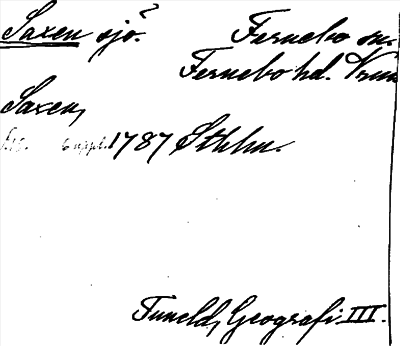 Saxen sjö? Fernebo sn.
Fernebo hd. Vrml
Saxen,
6 uppl. 1787 Sthlm.
Tuneld, Geografi III.